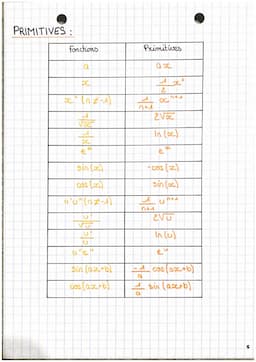 PRIMITIVES :
Fonctions Primitives
a ax
x 1/2 x²
xⁿ (n≠-1) 1/(n+1) xⁿ⁺¹
1/√x 2√x
1/x ln(x)
eˣ eˣ
sin(x) -cos(x)
cos(x) sin(x)
u'uⁿ (n≠-1) 1/(n+1) uⁿ⁺¹
u'/√u 2√u
u'/u ln(u)
u'eᵘ eᵘ
sin(ax+b) -1/a cos(ax+b)
cos(ax+b) 1/a sin(ax+b)